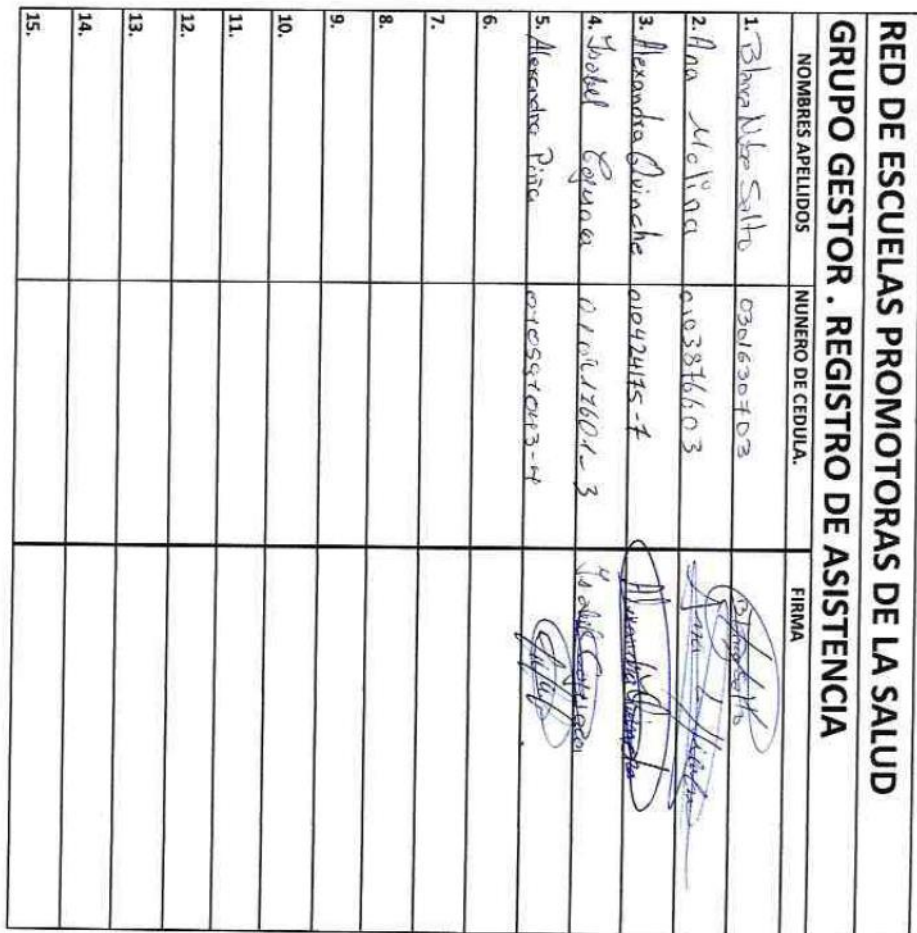 RED DE ESCUELAS PROMOTORAS DE LA SALUD
GRUPO GESTOR . REGISTRO DE ASISTENCIA
NOMBRES APELLIDOS NUNERO DE CEDULA. FIRMA
1. Blanca Salto 0301630703 Blanca Salto
2. Ana Molina 0103876603 Ana
3. Alexandra Quinche 010424175-7 Alexandra Quinche
4. Isabel Isabel
5. Alexandra Piña
6.
7.
8.
9.
10.
11.
12.
13.
14.
15.